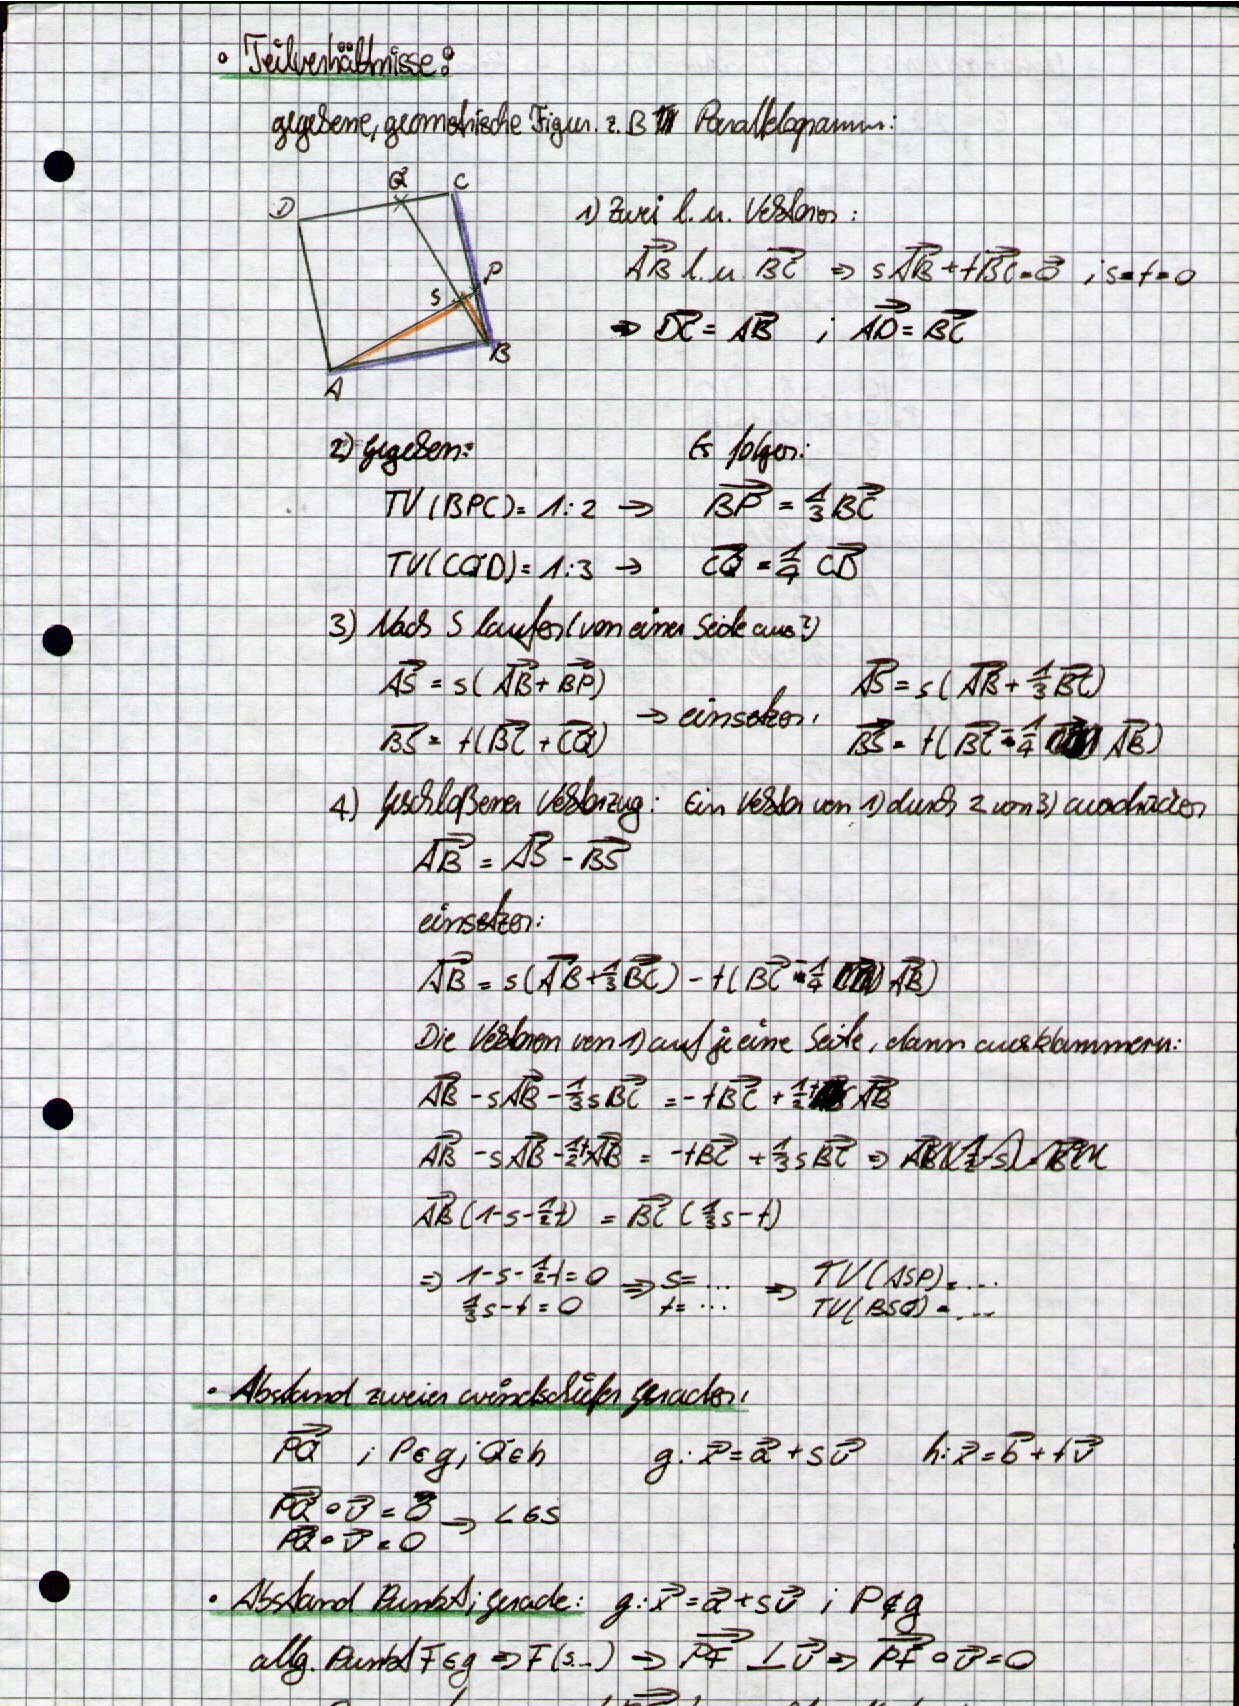 • Teilverhältnisse:
gegebene, geometrische Figur. z.B Parallelogramm:
D Q C
P
S
B
A
1) Zwei l.u. Vektoren:
AB⃗ l.u. BC⃗ ⇒ sAB⃗ + tBC⃗ = 0⃗ ; s=t=0
⇒ DC⃗ = AB⃗ ; AD⃗ = BC⃗
2) gegeben: Es folgen:
TV(BPC) = 1:2 → BP⃗ = 1/3 BC⃗
TV(CQD) = 1:3 → CQ⃗ = 1/4 CD⃗
3) Nach S laufen (von einer Seite aus?)
AS⃗ = s(AB⃗ + BP⃗) AS⃗ = s(AB⃗ + 1/3 BC⃗)
→ einsetzen:
BS⃗ = t(BC⃗ + CQ⃗) BS⃗ = t(BC⃗ - 1/4 AB⃗)
4) Geschloßener Vektorzug: Ein Vektor von 1) durch 2 von 3) ausdrücken
AB⃗ = AS⃗ - BS⃗
einsetzen:
AB⃗ = s(AB⃗ + 1/3 BC⃗) - t(BC⃗ - 1/4 AB⃗)
Die Vektoren von 1) auf je eine Seite, dann ausklammern:
AB⃗ - sAB⃗ - 1/3 sBC⃗ = -tBC⃗ + 1/2 t AB⃗
AB⃗ - sAB⃗ - 1/2 tAB⃗ = -tBC⃗ + 1/3 sBC⃗ ⇒
AB⃗ (1-s-1/2 t) = BC⃗ (1/3 s - t)
⇒ 1-s-1/2 t = 0 ⇒ s= ... ⇒ TV(ASP) = ...
1/3 s - t = 0 t= ... TV(BSQ) = ...
• Abstand zweier windschiefer Geraden:
PQ⃗ ; P∈g; Q∈h g: x⃗ = a⃗ + s u⃗ h: x⃗ = b⃗ + t v⃗
PQ⃗ ∘ u⃗ = 0 → LGS
PQ⃗ ∘ v⃗ = 0
• Abstand Punkt; Gerade: g: x⃗ = a⃗ + s u⃗ ; P∉g
allg. Punkt F∈g ⇒ F(s...) → PF⃗ ⊥ u⃗ ⇒ PF⃗ ∘ u⃗ = 0